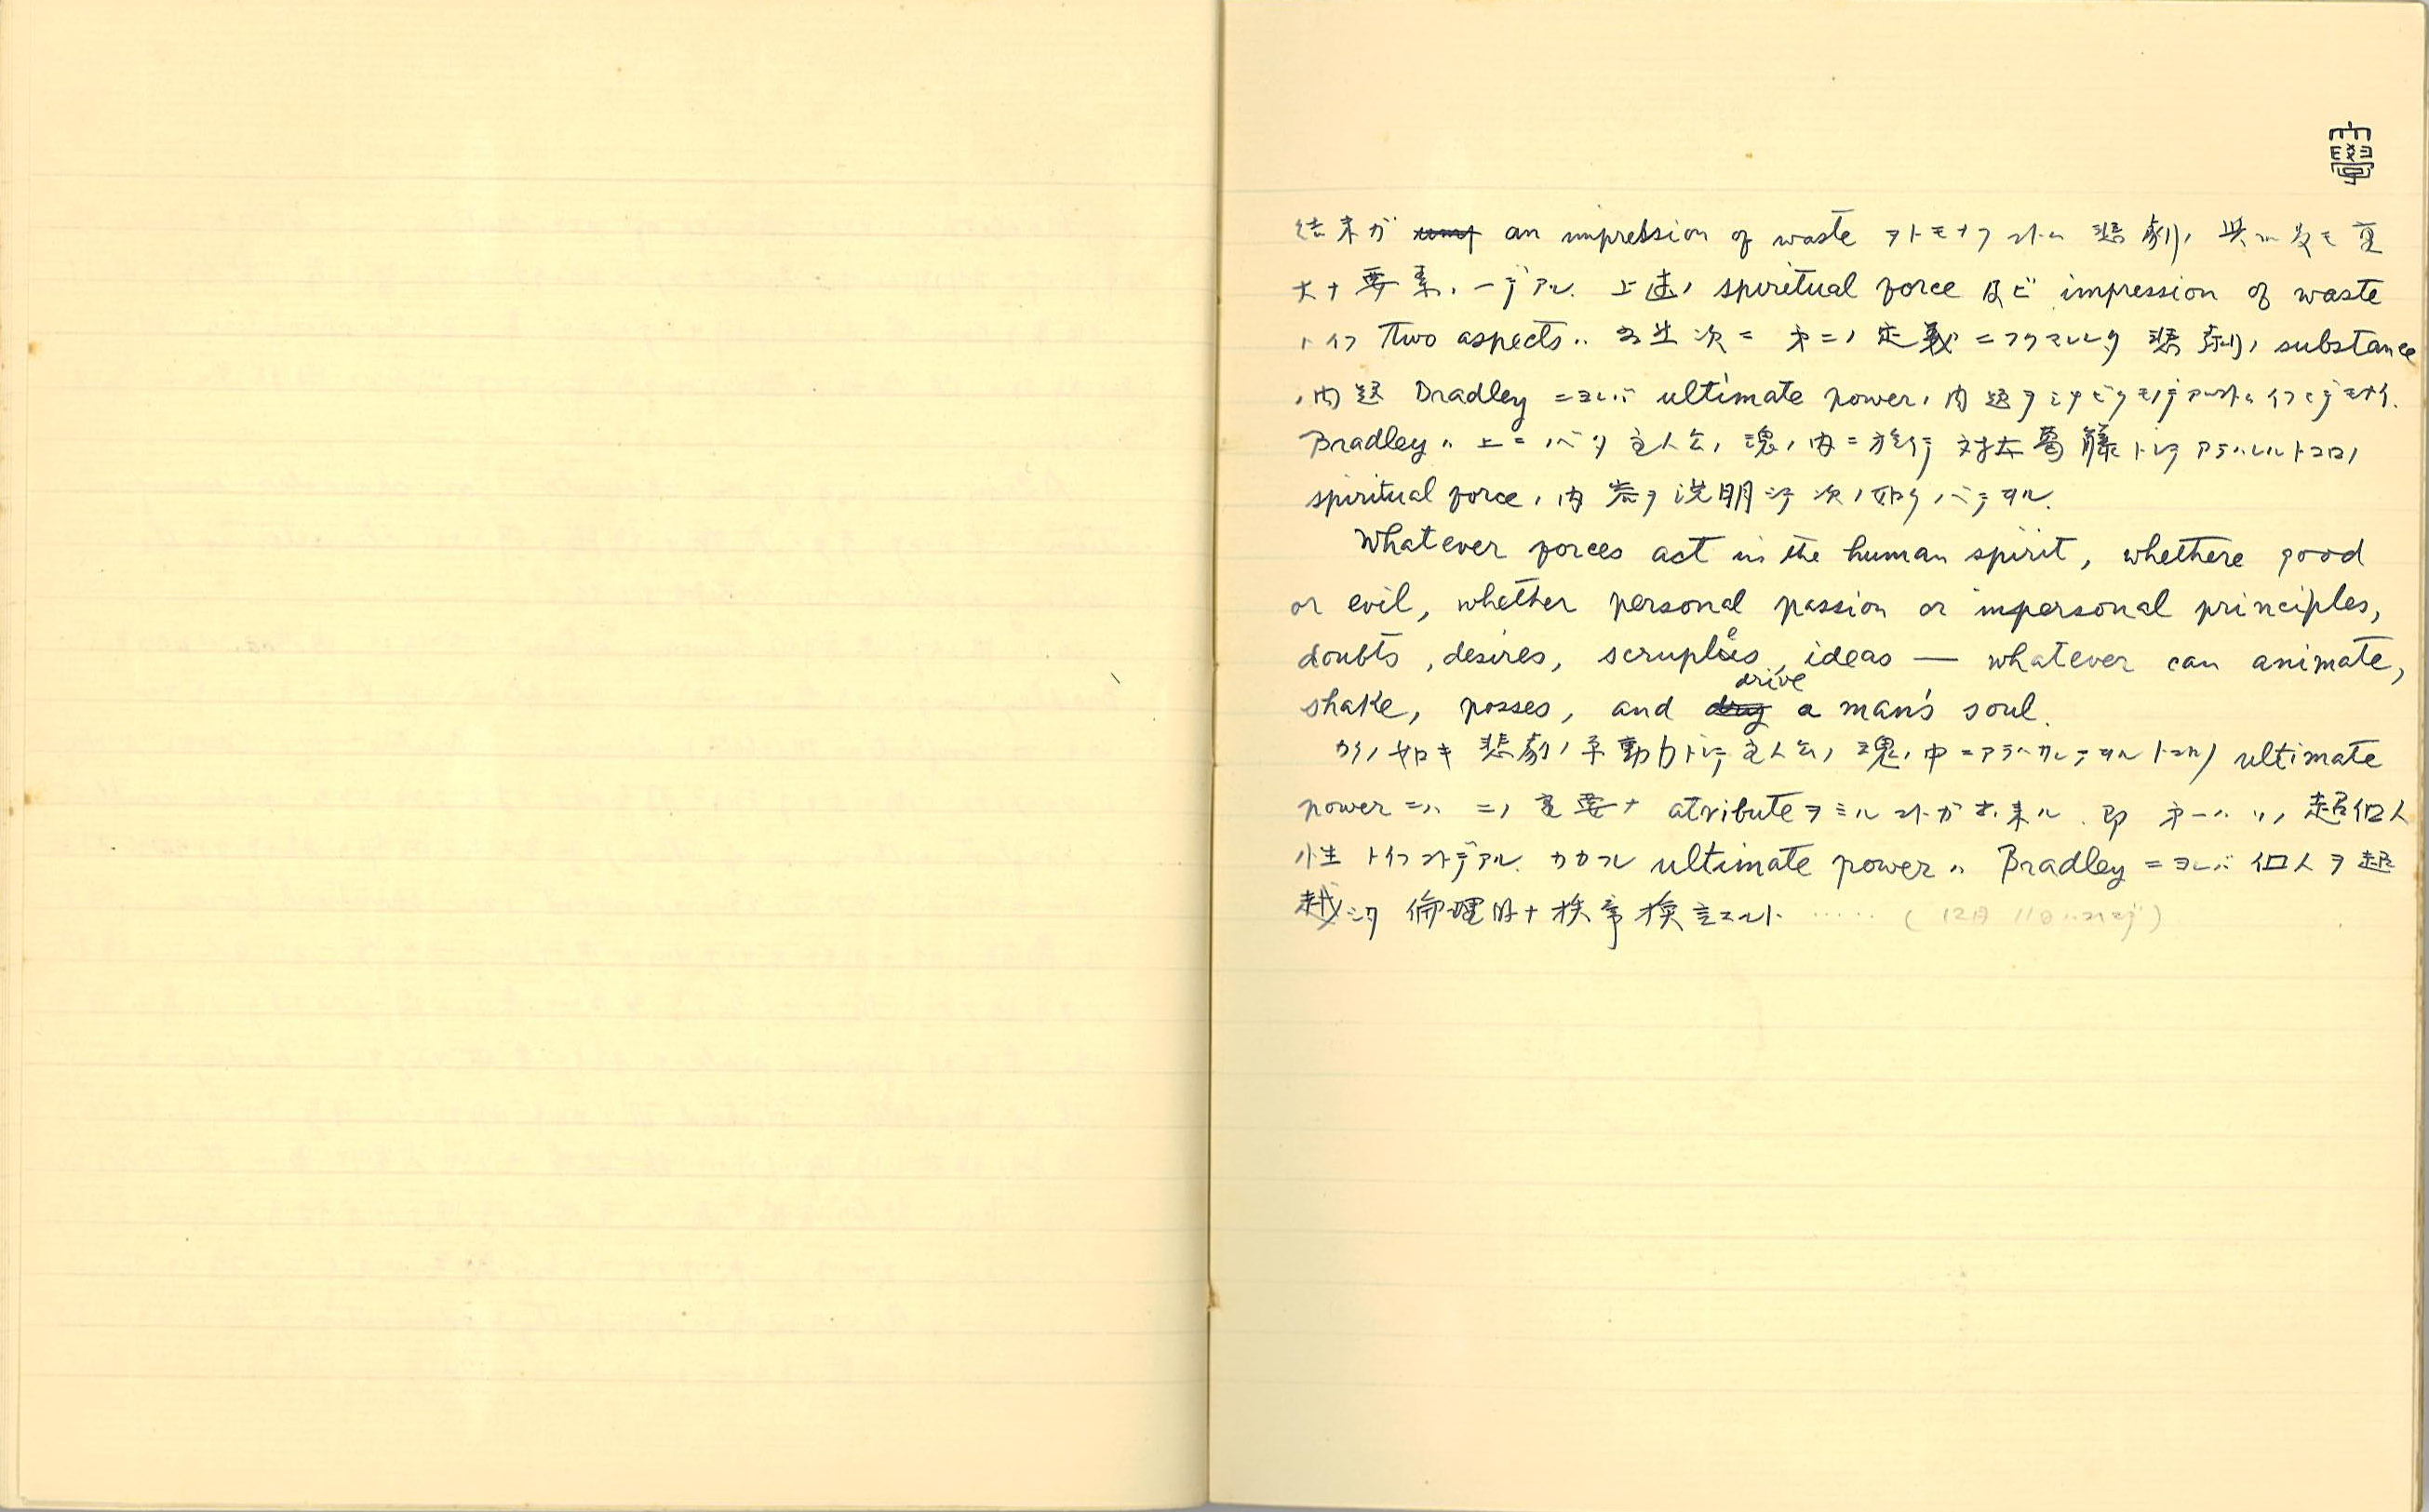 大學
結末ガ an impression of waste ヲトモナフコトハ 悲劇ノ 最モ重
大ナ要素ノ一デアル. 上述ノ spiritual force 及ビ impression of waste
トイフ two aspects ハ 次ニ 第二ノ定義ニフクマレタ 悲劇ノ substance
ノ問題 Bradley ニヨレバ ultimate power ノ問題ヲミチビクモノデアルコトハイフマデモナイ.
Bradley ハ 上ニノベタ主人公ノ魂ノ内ニ於ケル対立葛藤トシテアラハレルトコロノ
spiritual force ノ内容ヲ説明シテ次ノ如クノベテヰル.
Whatever forces act in the human spirit, whethere good
or evil, whether personal passion or impersonal principles,
doubts, desires, scruples, ideas — whatever can animate,
shake, posses, and drive a man's soul.
カクノ如キ悲劇ノ原動力トシテ主人公ノ魂ノ中ニアラハレテヰルトコロノ ultimate
power ニハ 二ツノ重要ナ atribute ヲミルコトガ出来ル. 即 第一ハソノ超個人
性トイフコトデアル. カカル ultimate power ハ Bradley ニヨレバ個人ヲ超
越シタ 倫理的ナ秩序 コト ‥‥‥ (12月11日ハココマデ)